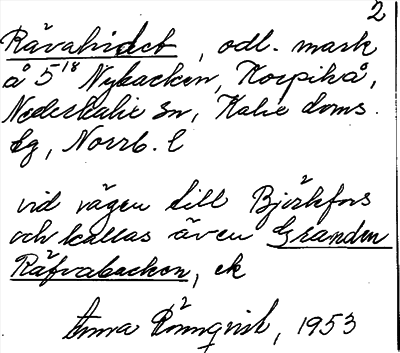 2
Rävahidet, odl. mark
å 5¹⁸ Nybacken, Korpikå,
Nederkalix sn, Kalix doms.
dg, Norrb. l
vid vägen till Björkfors
och kallas även Granden
Räfvabacken, ek
Anna Rönnqvist, 1953